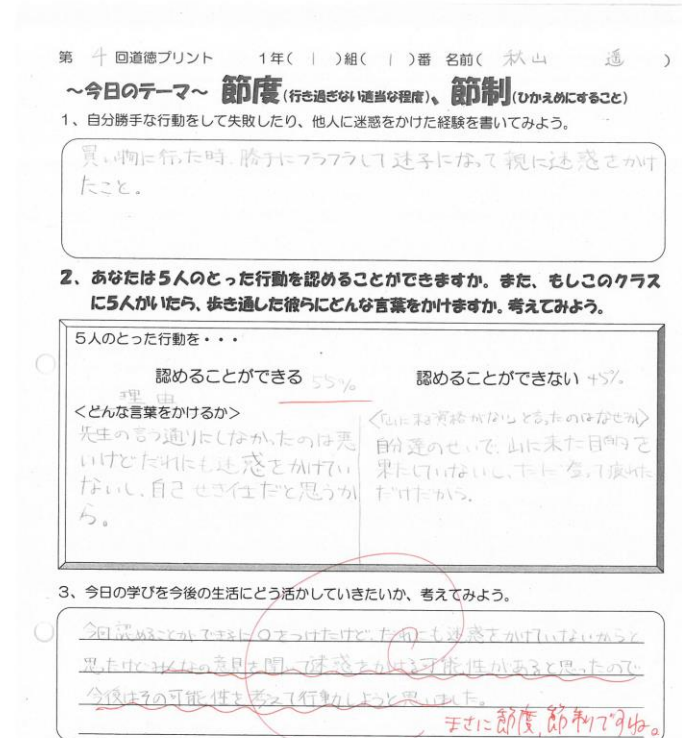 第 4 回道徳プリント 1年( 1 )組( 1 )番 名前( 秋山 遥 )
~今日のテーマ~ 節度(行き過ぎない適当な程度)、節制(ひかえめにすること)
1、自分勝手な行動をして失敗したり、他人に迷惑をかけた経験を書いてみよう。
買い物に行った時、勝手にフラフラして迷子になって親に迷惑をかけ
たこと。
2、あなたは5人のとった行動を認めることができますか。また、もしこのクラス
に5人がいたら、歩き通した彼らにどんな言葉をかけますか。考えてみよう。
5人のとった行動を・・・
認めることができる 55% 認めることができない 45%
理由
<どんな言葉をかけるか>
先生の言う通りにしなかったのは悪
いけどだれにも迷惑をかけてい
ないし、自己せき任だと思うか
ら。
〈山に来る資格がないと言ったのはなぜか〉
自分達のせいで、山に来た目的を
果たしていないし、ただ 登って疲れた
だけだから。
3、今日の学びを今後の生活にどう活かしていきたいか、考えてみよう。
今回認めることができるに○をつけたけど、だれにも迷惑をかけていないからと
思ったけどみんなの意見を聞いて迷惑をかける可能性があると思ったので
今後はその可能性を考えて行動しようと思いました。
まさに節度、節制ですね。